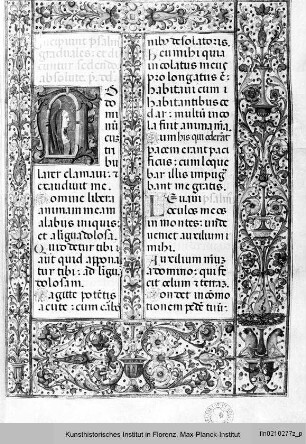 Incipiunt psalmi
graduales: et di
cuntur sedendo
absolute. ps. dd.
Ad
do
mi
nū
cū
tri
bu
larer clamaui: et
exaudiuit me.
Domine libera
animam meam
a labijs iniquis:
et a lingua dolosa.
Quid detur tibi
aut quid appona
tur tibi: ad lingua
dolosam.
Sagitte potētis
acute: cum carbo
nibꝰ desolatorijs.
Heu mihi quia
incolatus meus
prolongatus ē:
habitaui cum
habitantibus ce
dar: multū inco
la fuit anima mea.
Cum his qui oderāt
pacem eram paci
ficus: cum loque
bar illis impug
bant me gratis.
Leuaui
oculos meos
in montes: unde
ueniet auxilium
mihi.
Auxilium meū
a domino: qui fe
cit celum et terrā.
Non det in cōmo
tionem pedē tuū:
Kunsthistorisches Institut in Florenz, Max-Planck-Institut
fln0210277z_p